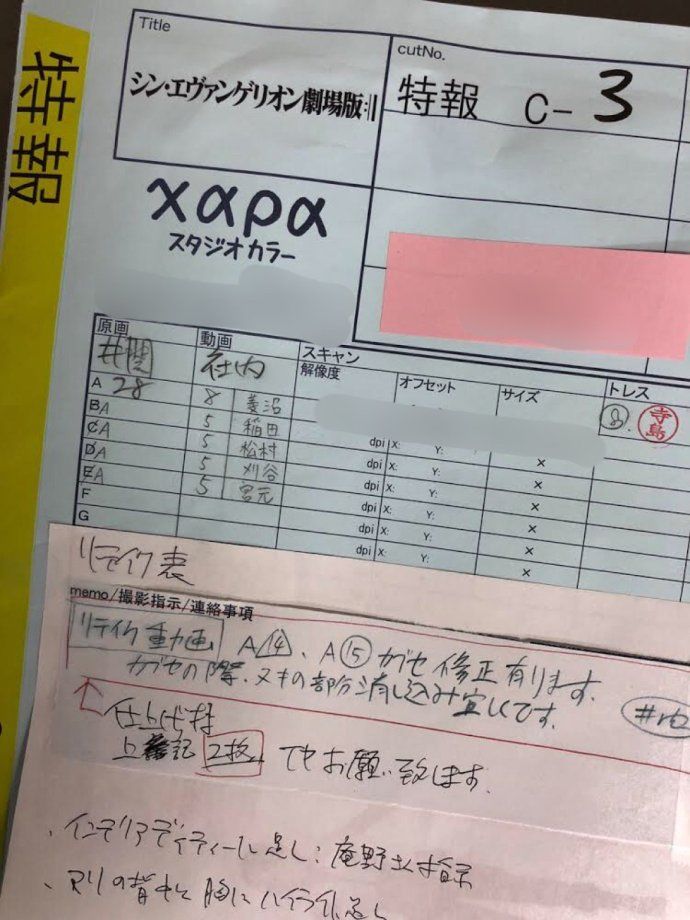 特報
Title
シン・エヴァンゲリオン劇場版:||
cutNo.
特報 C-3
χαρα
スタジオカラー
原画 動画 スキャン
井関 社内 解像度 オフセット サイズ トレス
A 28 8 菱沼 寺島
BA 5 稲田
CA 5 松村 dpi X: Y: ×
DA 5 刈谷 dpi X: Y: ×
EA 5 宮元 dpi X: Y: ×
F dpi X: Y: ×
G dpi X: Y: ×
dpi X: Y: ×
リテイク表
memo/撮影指示/連絡事項
リテイク動画 A14、A15 ガセ修正有ります。
ガセの際、ヌキの部分消し込み宜しくです。
仕上げ
上記2枚 でお願い致します。
・インテリアディティール足し:庵野さん指示
・マリの背中と胸にハイライト足し